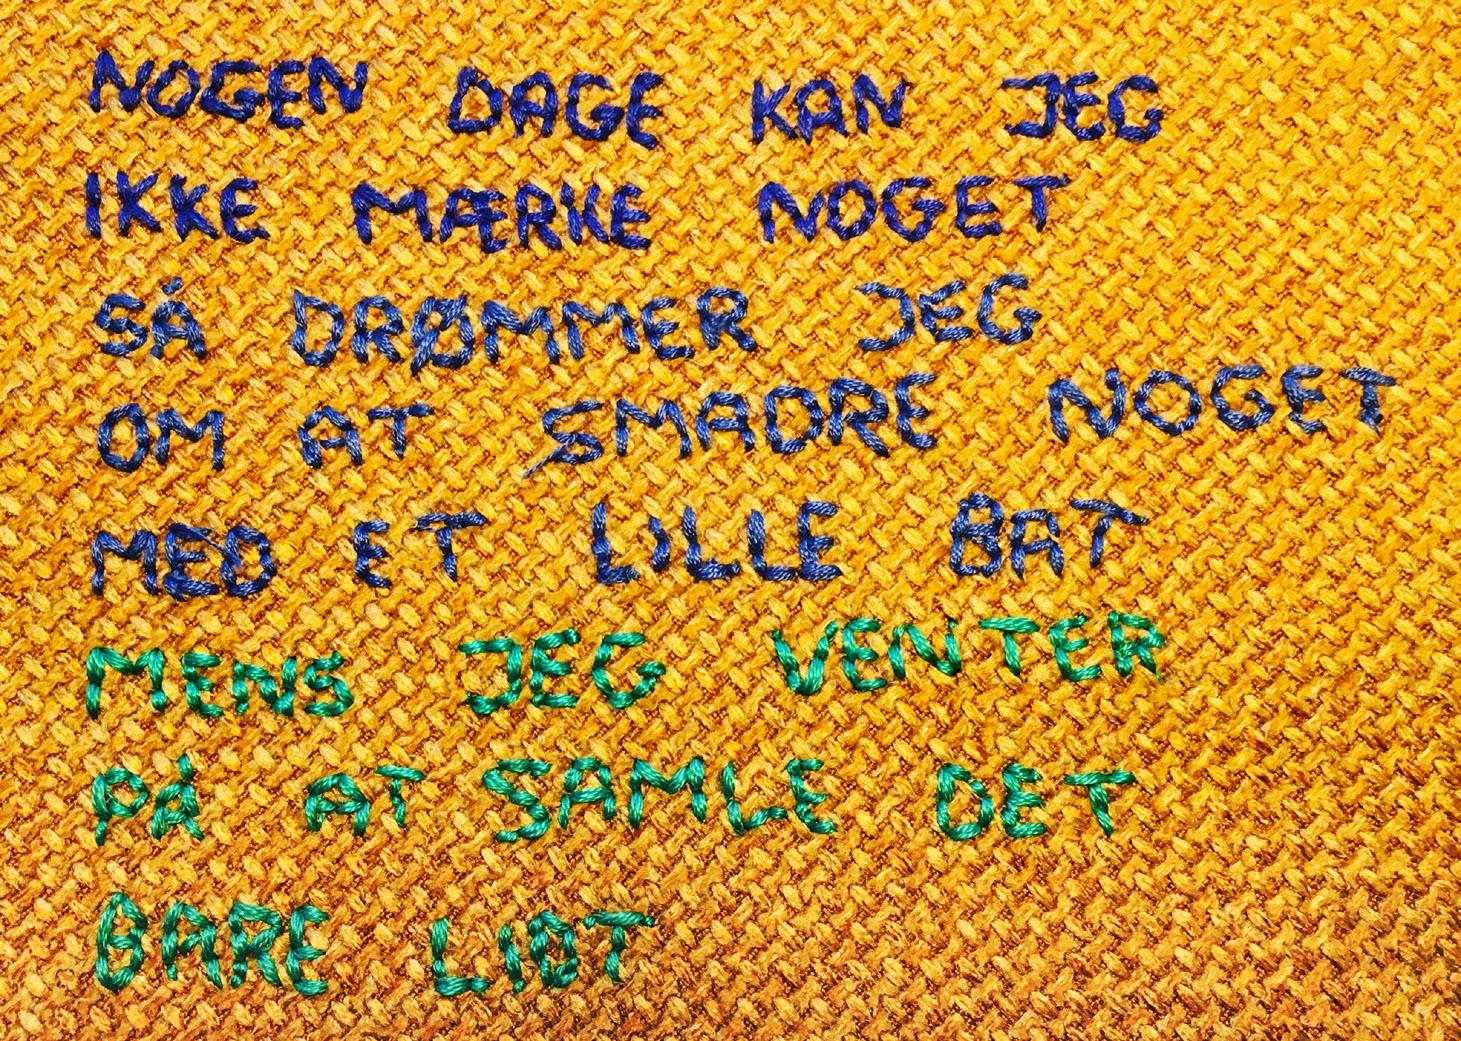 NOGEN DAGE KAN JEG
IKKE MÆRKE NOGET
SÅ DRØMMER JEG
OM AT SMADRE NOGET
MED ET LILLE BAT
MENS JEG VENTER
PÅ AT SAMLE DET
BARE LIDT